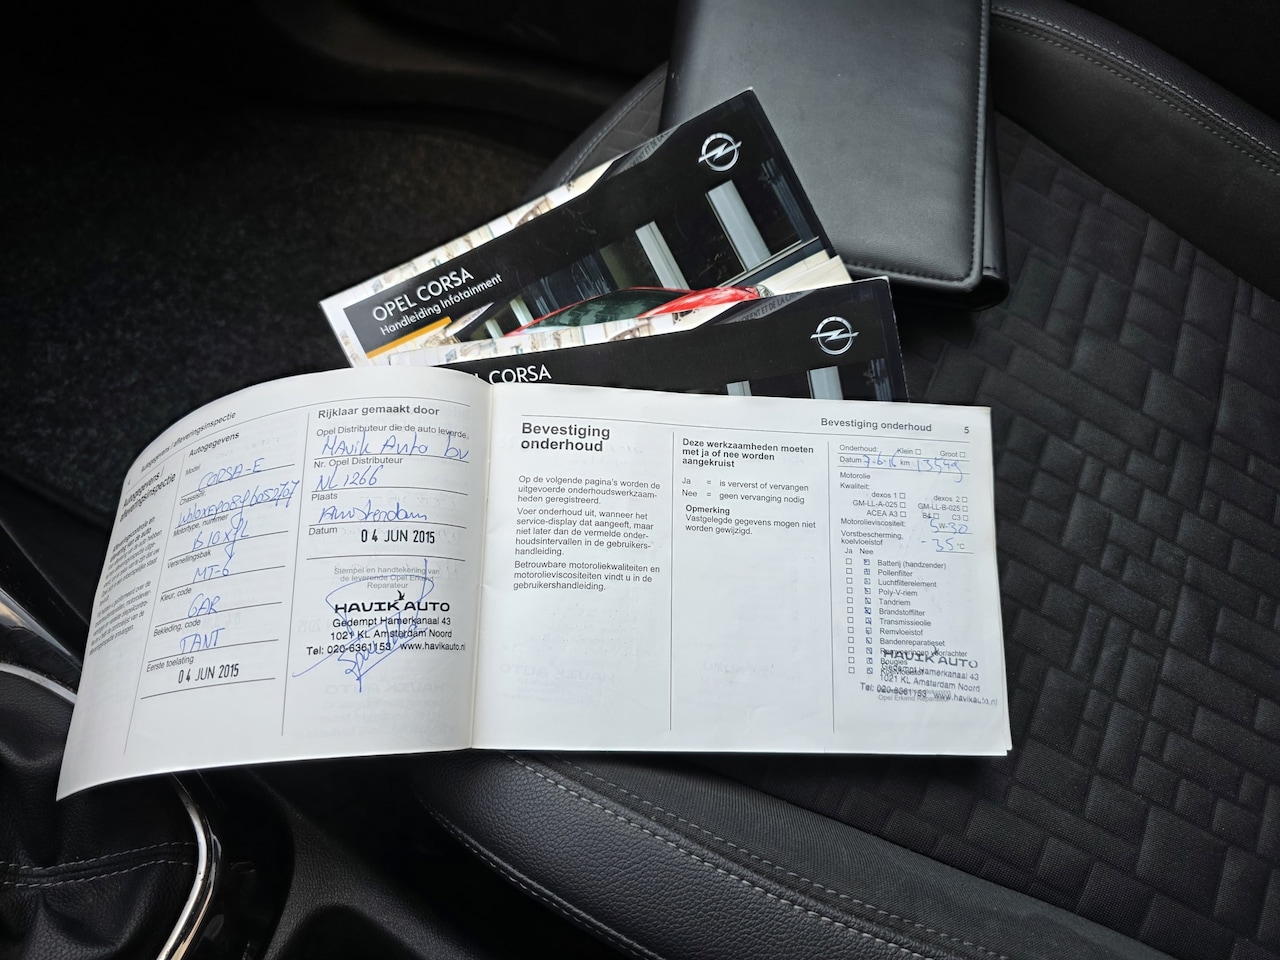 OPEL CORSA
Handleiding Infotainment
CORSA
Autogegevens / afleveringsinspectie
Autogegevens /
afleveringsinspectie
Autogegevens
Model
CORSA-E
Chassisnr.
Motortype, nummer
B10XFL
Versnellingsbak
MT-6
Kleur, code
GAR
Bekleding, code
TANT
Eerste toelating
04 JUN 2015
Rijklaar gemaakt door
Opel Distributeur die de auto leverde
HAvik Auto bv
Nr. Opel Distributeur
NL 1266
Plaats
Amsterdam
Datum
04 JUN 2015
Stempel en handtekening van
de leverende Opel Erkend
Reparateur
HAVIK AUTO
Gedempt Hamerkanaal 43
1021 KL Amsterdam Noord
Tel: 020-6361153 www.havikauto.nl
Bevestiging onderhoud 5
Bevestiging
onderhoud
Op de volgende pagina's worden de
uitgevoerde onderhoudswerkzaam-
heden geregistreerd.
Voer onderhoud uit, wanneer het
service-display dat aangeeft, maar
niet later dan de vermelde onder-
houdsintervallen in de gebruikers-
handleiding.
Betrouwbare motoroliekwaliteiten en
motorolieviscositeiten vindt u in de
gebruikershandleiding.
Deze werkzaamheden moeten
met ja of nee worden
aangekruist
Ja = is ververst of vervangen
Nee = geen vervanging nodig
Opmerking
Vastgelegde gegevens mogen niet
worden gewijzigd.
Onderhoud: Klein Groot
Datum 7-6-16 km 13549
Motorolie
Kwaliteit:
dexos 1 dexos 2
GM-LL-A-025 GM-LL-B-025
ACEA A3 B4 C3
Motorolieviscositeit: 5W-30
Vorstbescherming,
koelvloeistof -35 °C
Ja Nee
Batterij (handzender)
Pollenfilter
Luchtfilterelement
Poly-V-riem
Tandriem
Brandstoffilter
Transmissieolie
Remvloeistof
Bandenreparatieset
Bougies
Koelvloeistof
HAVIK AUTO
Gedempt Hamerkanaal 43
1021 KL Amsterdam Noord
Tel: 020-6361153 www.havikauto.nl
Opel Erkend Reparateur